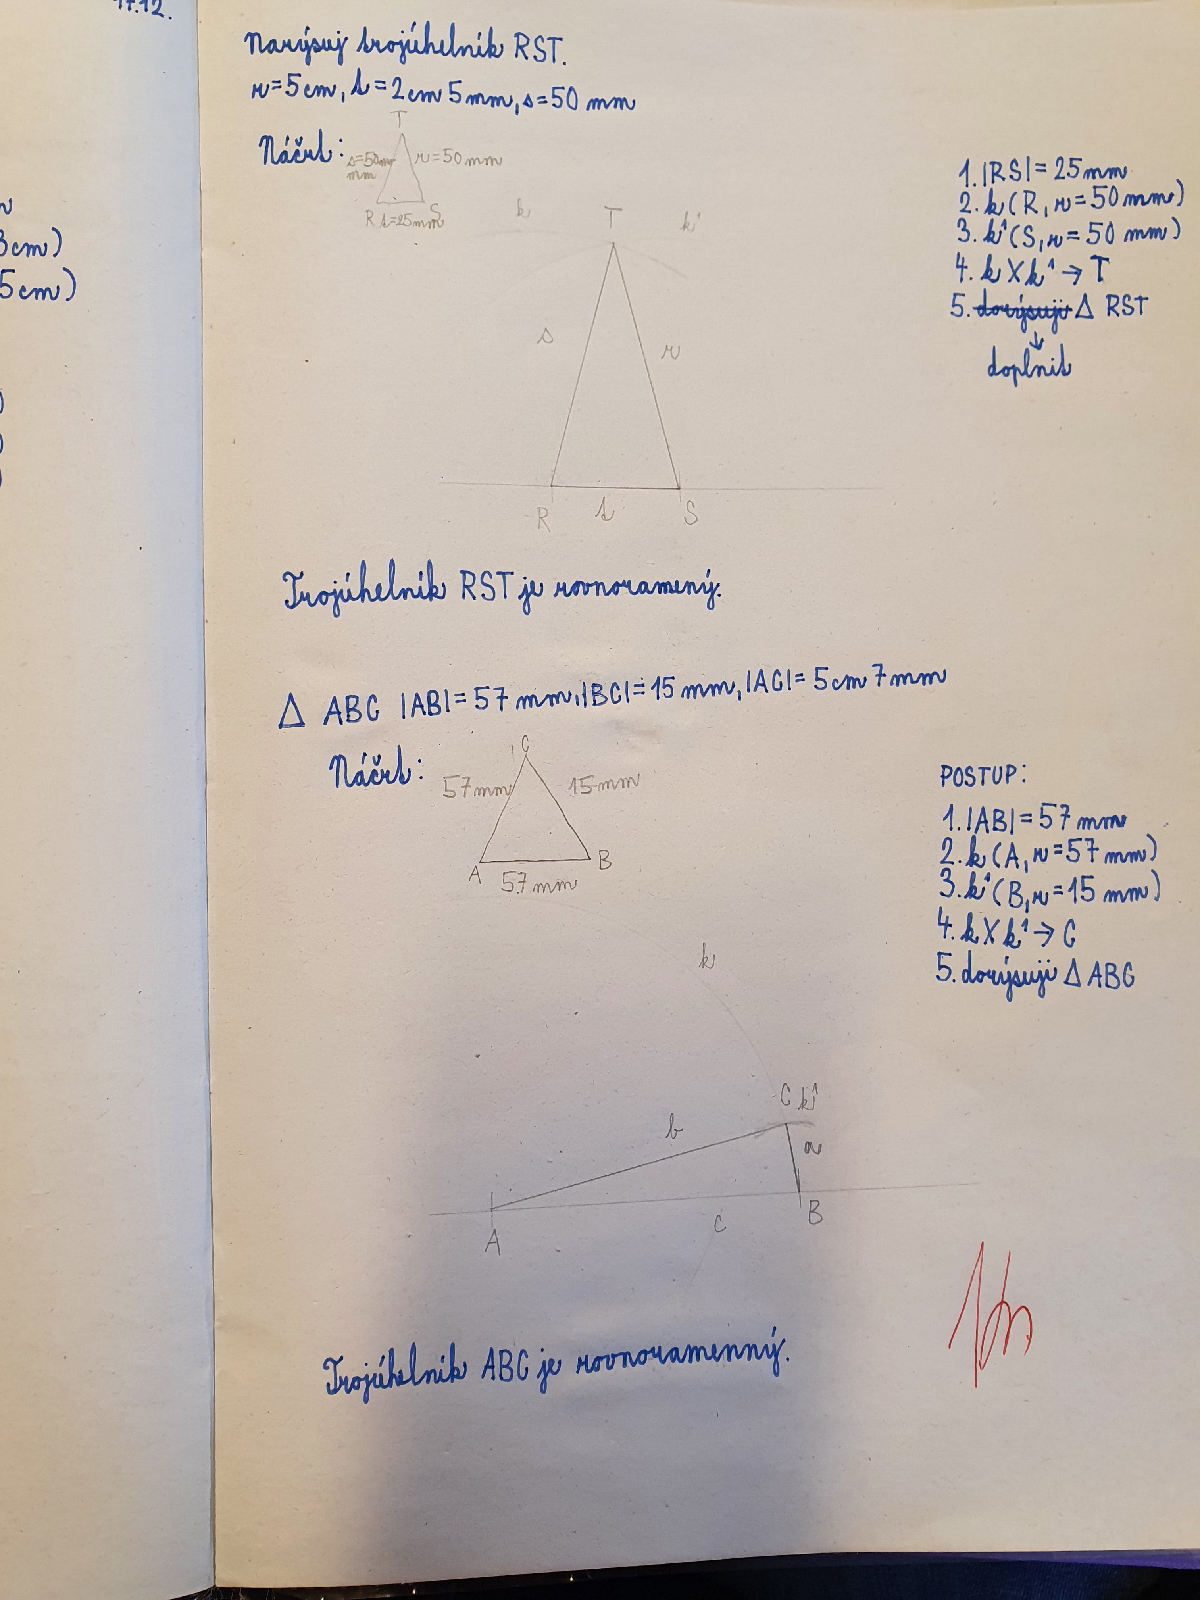 17.12.
3cm)
5cm)
Narýsuj trojúhelník RST.
r=5cm, t=2cm 5mm, s=50 mm
Náčrt:
T
s=50mm
mm
r=50mm
R
S
t=25mm
1. |RS|= 25mm
2. k(R, r=50mm)
3. k¹(S, r=50 mm)
4. k X k¹ → T
5. dorýsuji Δ RST
↓
doplnit
k
T
k¹
s
r
R
t
S
Trojúhelník RST je rovnoramený.
Δ ABC |AB|=57 mm, |BC|=15mm, |AC|=5cm 7mm
Náčrt:
C
57mm
15mm
A
B
57mm
POSTUP:
1. |AB|=57 mm
2. k(A, r=57 mm)
3. k¹(B, r=15 mm)
4. k X k¹ → C
5. dorýsuji Δ ABC
k
C k¹
b
a
A
c
B
Trojúhelník ABC je rovnoramenný.